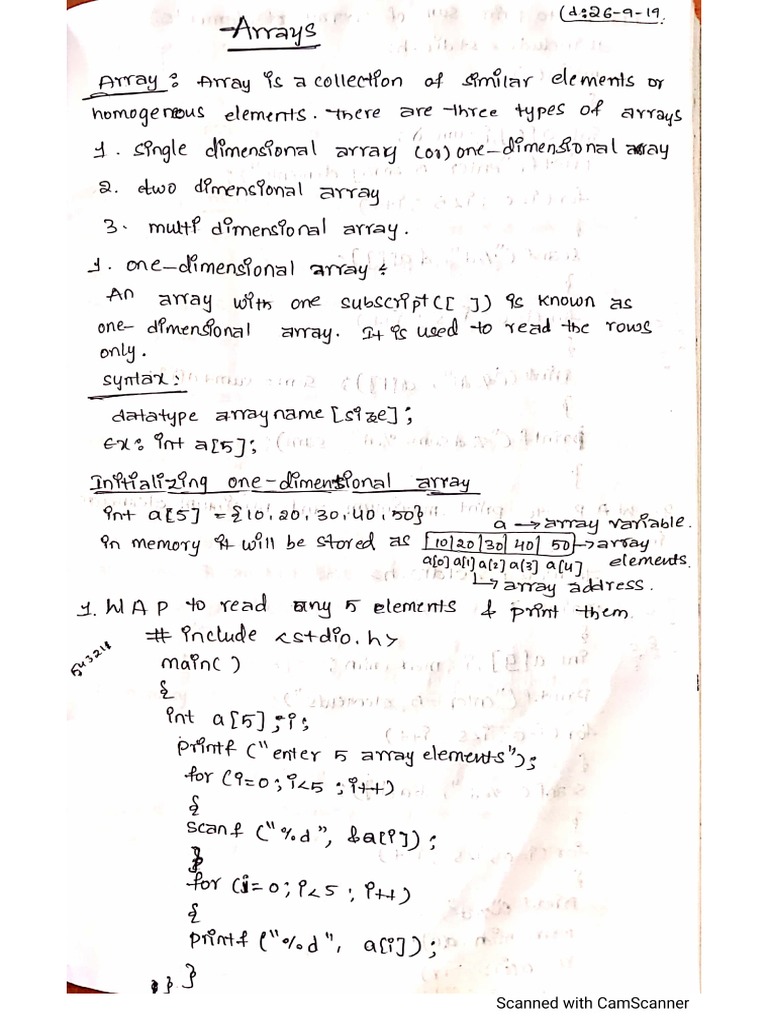 (d:26-9-19.
Arrays
Array: Array is a collection of similar elements or
homogeneous elements. There are three types of arrays
1. single dimensional array (or) one-dimensional array
2. two dimensional array
3. multi dimensional array.
1. one-dimensional array:
An array with one subscript([ ]) is known as
one-dimensional array. It is used to read the rows
only.
syntax:
datatype arrayname [size];
Ex: int a[5];
Initializing one-dimensional array
int a[5] = {10, 20, 30, 40, 50}
a → array variable.
in memory it will be stored as 10 20 30 40 50 → array
elements.
a[0] a[1] a[2] a[3] a[4]
→ array address.
1. WAP to read any 5 elements & print them.
# include <stdio.h>
543218
main( )
{
int a[5]; i;
printf ("enter 5 array elements");
for (i=0; i<5 ; i++)
{
scanf ("%d", &a[i]);
}
for (i=0; i<5 ; i++)
{
printf ("%d", a[i]);
} }
Scanned with CamScanner